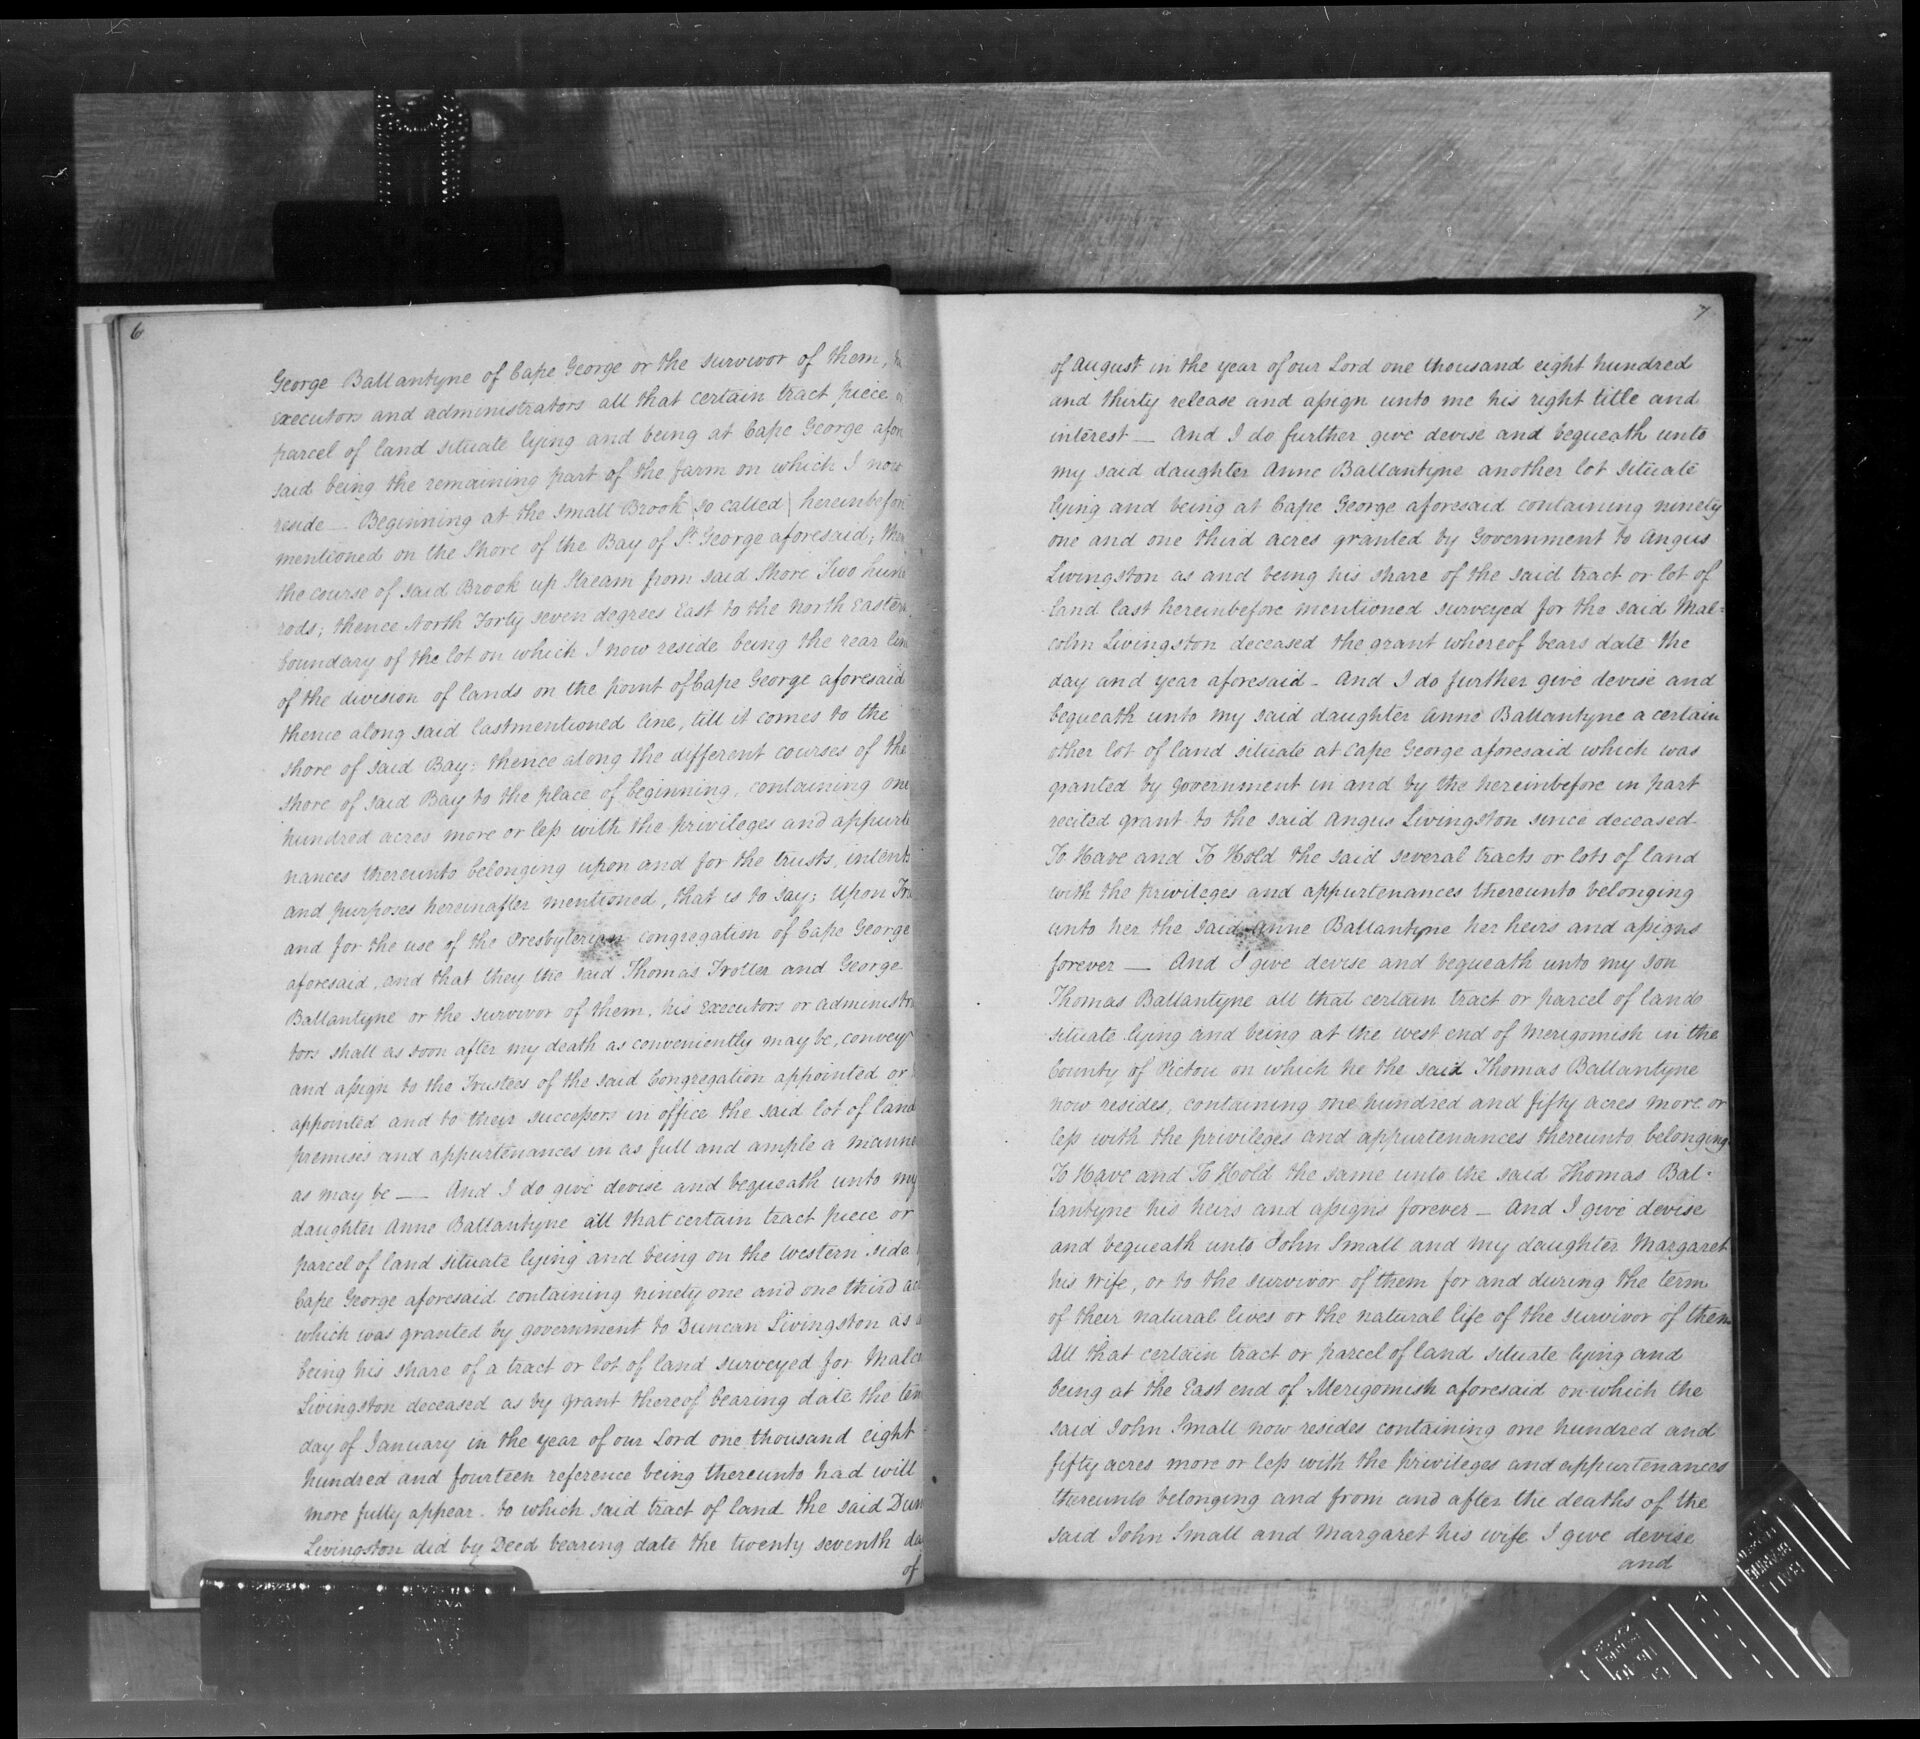 6
George Ballantyne of Cape George or the survivor of them,
Executors and administrators all that certain tract piece
parcel of land situate lying and being at Cape George afore
said being the remaining part of the farm on which I now
reside — Beginning at the Small Brook (so called) hereinbefore
mentioned on the Shore of the Bay of St George aforesaid;
the course of said Brook up Stream from said Shore Two
rods; thence North Forty seven degrees East to the North Eastern
boundary of the lot on which I now reside being the rear line
of the division of lands on the point of Cape George aforesaid
thence along said lastmentioned line, till it comes to the
shore of said Bay: thence along the different courses of the
shore of said Bay to the place of beginning, containing one
hundred acres more or less with the privileges and appurte
nances thereunto belonging upon and for the trusts, intents
and purposes hereinafter mentioned, that is to say; Upon
and for the use of the Presbyterian congregation of Cape George
aforesaid, and that they the said Thomas Trotter and George
Ballantyne or the survivor of them, his Executors or administra
tors shall as soon after my death as conveniently may be, convey
and assign to the Trustees of the said Congregation appointed or
appointed and to their successors in office the said lot of land
premises and appurtenances in as full and ample a manner
as may be — And I do give devise and bequeath unto my
daughter Anne Ballantyne all that certain tract piece or
parcel of land situate lying and being on the western side
Cape George aforesaid containing ninety one and one third
which was granted by government to Duncan Livingston as
being his share of a tract or lot of land surveyed for Malco
Livingston deceased as by grant thereof bearing date the
day of January in the year of our Lord one thousand eight
hundred and fourteen reference being thereunto had will
more fully appear. to which said tract of land the said Dun
Livingston did by Deed bearing date the twenty seventh day
of
7
of August in the year of our Lord one thousand eight hundred
and thirty release and assign unto me his right title and
interest — And I do further give devise and bequeath unto
my said daughter Anne Ballantyne another lot situate
lying and being at Cape George aforesaid containing ninety
one and one third acres granted by Government to Angus
Livingston as and being his share of the said tract or lot of
land last hereinbefore mentioned surveyed for the said Mal=
colm Livingston deceased the grant whereof bears date the
day and year aforesaid - And I do further give devise and
bequeath unto my said daughter Anne Ballantyne a certain
other lot of land situate at Cape George aforesaid which was
granted by Government in and by the hereinbefore in part
recited grant to the said Angus Livingston since deceased
To Have and To Hold the said several tracts or lots of land
with the privileges and appurtenances thereunto belonging
unto her the said Anne Ballantyne her heirs and assigns
forever — And I give devise and bequeath unto my son
Thomas Ballantyne all that certain tract or parcel of land
situate lying and being at the west end of Merigomish in the
County of Pictou on which he the said Thomas Ballantyne
now resides, containing one hundred and fifty acres more or
less with the privileges and appurtenances thereunto belonging
To Have and To Hold the same unto the said Thomas Bal-
lantyne his heirs and assigns forever — And I give devise
and bequeath unto John Small and my daughter Margaret
his wife, or to the survivor of them for and during the term
of their natural lives or the natural life of the survivor of them
All that certain tract or parcel of land situate lying and
being at the East end of Merigomish aforesaid on which the
said John Small now resides containing one hundred and
fifty acres more or less with the privileges and appurtenances
thereunto belonging and from and after the deaths of the
said John Small and Margaret his wife I give devise
and